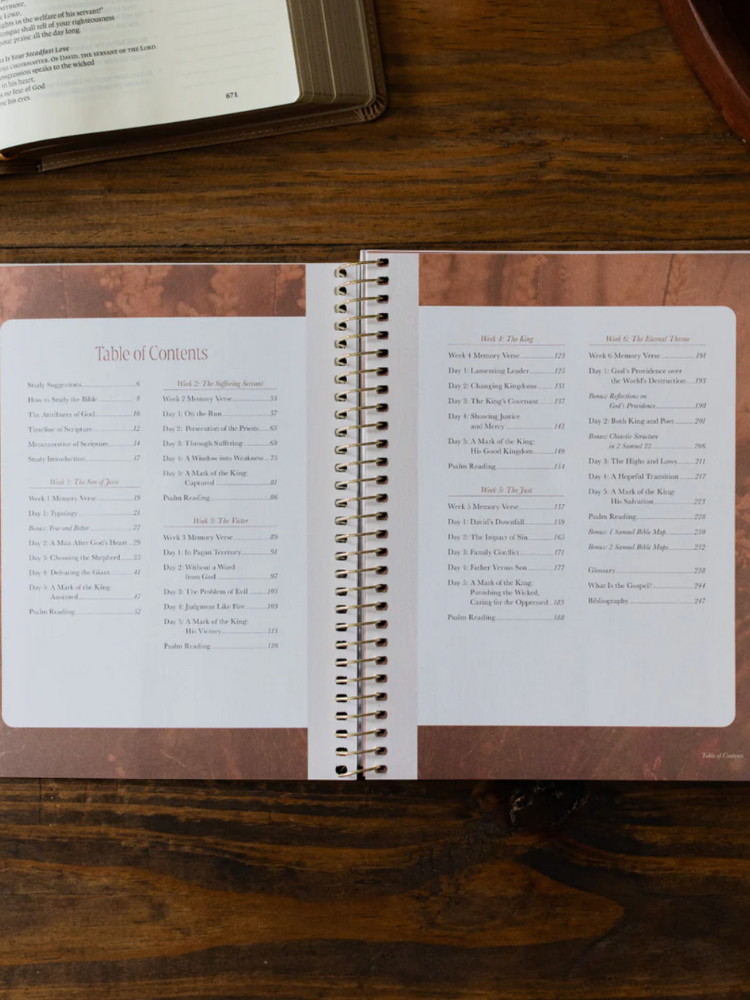 ermore.
e LORD,
ghts in the welfare of his servant!"
tongue shall tell of your righteousness
your praise all the day long.
Is Your Steadfast Love
THE CHOIRMASTER. OF DAVID, THE SERVANT OF THE LORD.
ansgression speaks to the wicked
in his heart;
is no fear of God
ore his eyes.
671
Table of Contents
Study Suggestions 6
How to Study the Bible 8
The Attributes of God 10
Timeline of Scripture 12
Metanarrative of Scripture 14
Study Introduction 17
Week 1: The Son of Jesse
Week 1 Memory Verse 19
Day 1: Typology 21
Bonus: True and Better 27
Day 2: A Man After God's Heart 29
Day 3: Choosing the Shepherd 35
Day 4: Defeating the Giant 41
Day 5: A Mark of the King:
Anointed 47
Psalm Reading 52
Week 2: The Suffering Servant
Week 2 Memory Verse 55
Day 1: On the Run 57
Day 2: Persecution of the Priests 63
Day 3: Through Suffering 69
Day 4: A Window into Weakness 75
Day 5: A Mark of the King:
Captured 81
Psalm Reading 86
Week 3: The Victor
Week 3 Memory Verse 89
Day 1: In Pagan Territory 91
Day 2: Without a Word
from God 97
Day 3: The Problem of Evil 103
Day 4: Judgment Like Fire 109
Day 5: A Mark of the King:
His Victory 115
Psalm Reading 120
Week 4: The King
Week 4 Memory Verse 123
Day 1: Lamenting Leader 125
Day 2: Changing Kingdoms 131
Day 3: The King's Covenant 137
Day 4: Showing Justice
and Mercy 143
Day 5: A Mark of the King:
His Good Kingdom 149
Psalm Reading 154
Week 5: The Just
Week 5 Memory Verse 157
Day 1: David's Downfall 159
Day 2: The Impact of Sin 165
Day 3: Family Conflict 171
Day 4: Father Versus Son 177
Day 5: A Mark of the King:
Punishing the Wicked,
Caring for the Oppressed 183
Psalm Reading 188
Week 6: The Eternal Throne
Week 6 Memory Verse 191
Day 1: God's Providence over
the World's Destruction 193
Bonus: Reflections on
God's Providence 198
Day 2: Both King and Poet 201
Bonus: Chiastic Structure
in 2 Samuel 22 206
Day 3: The Highs and Lows 211
Day 4: A Hopeful Transition 217
Day 5: A Mark of the King:
His Salvation 223
Psalm Reading 228
Bonus: 1 Samuel Bible Map 230
Bonus: 2 Samuel Bible Maps 232
Glossary 238
What Is the Gospel? 244
Bibliography 247
Table of Contents